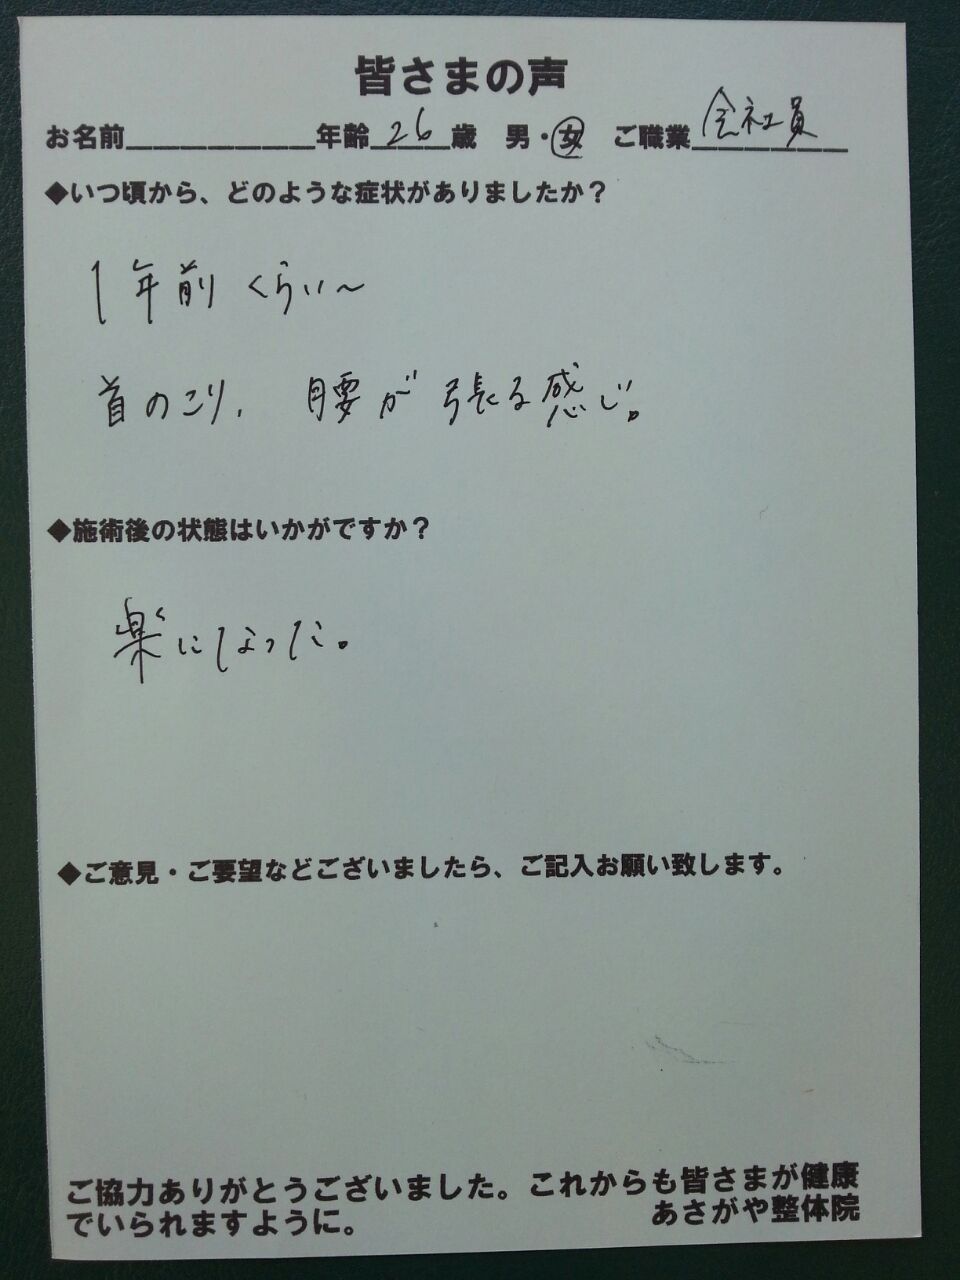 皆さまの声
お名前＿＿＿＿＿＿＿年齢 26 歳 男・女 ご職業 会社員
◆いつ頃から、どのような症状がありましたか？
1年前くらい〜
首のこり、腰が張る感じ。
◆施術後の状態はいかがですか？
楽になった。
◆ご意見・ご要望などございましたら、ご記入お願い致します。
ご協力ありがとうございました。これからも皆さまが健康
でいられますように。 あさがや整体院